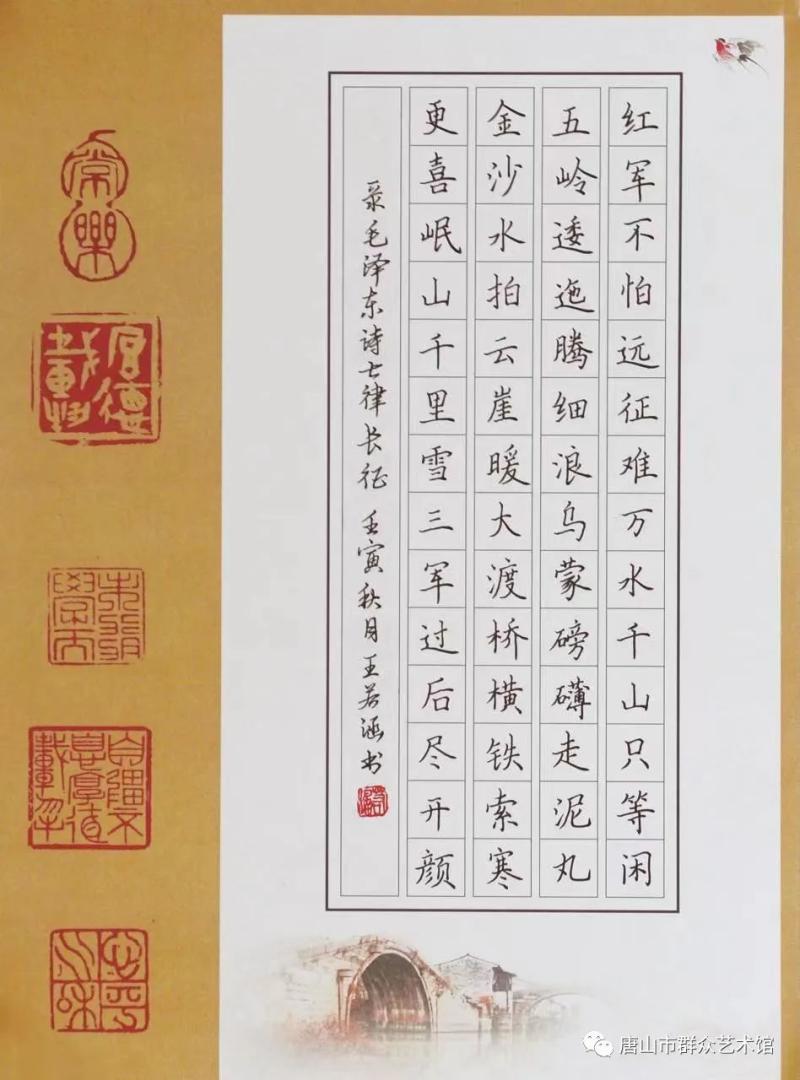 红军不怕远征难万水千山只等闲
五岭逶迤腾细浪乌蒙磅礴走泥丸
金沙水拍云崖暖大渡桥横铁索寒
更喜岷山千里雪三军过后尽开颜
录毛泽东诗七律长征 壬寅秋月王若涵书
常樂
厚德載物
唐山市群众艺术馆